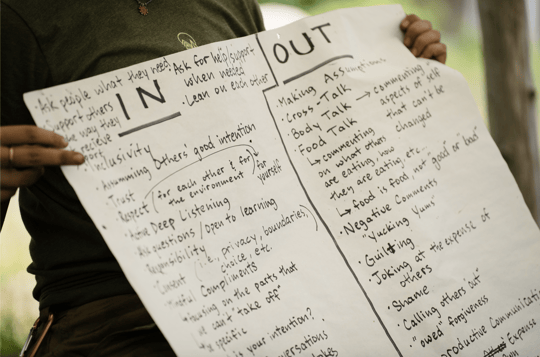 Ask people what they need
support others
way they
receive
Ask for help/support
when needed
Lean on each other
IN
Inclusivity
Assumming Others good intention
Trust
Respect (for each other & for
the environment)
for
yourself
Active Deep Listening
Ask questions / open to learning
Responsibility
Consent (i.e., privacy, boundaries,
choice, etc.
Compliments
focusing on the parts that
we can't "take off"
Be specific
is your intention?
OUT
Making Assumptions
Cross-Talk
Body Talk → commenting
aspects of self
that can't be
changed
Food Talk
↳ commenting
on what others
are eating, how
they are eating, etc.
↳ food is food not "good" or "bad"
Negative Comments
"Yucking Yums"
Guilting
Joking at the expense of
others
Shame
"Calling others out"
"owed" forgiveness
Communication
Expense